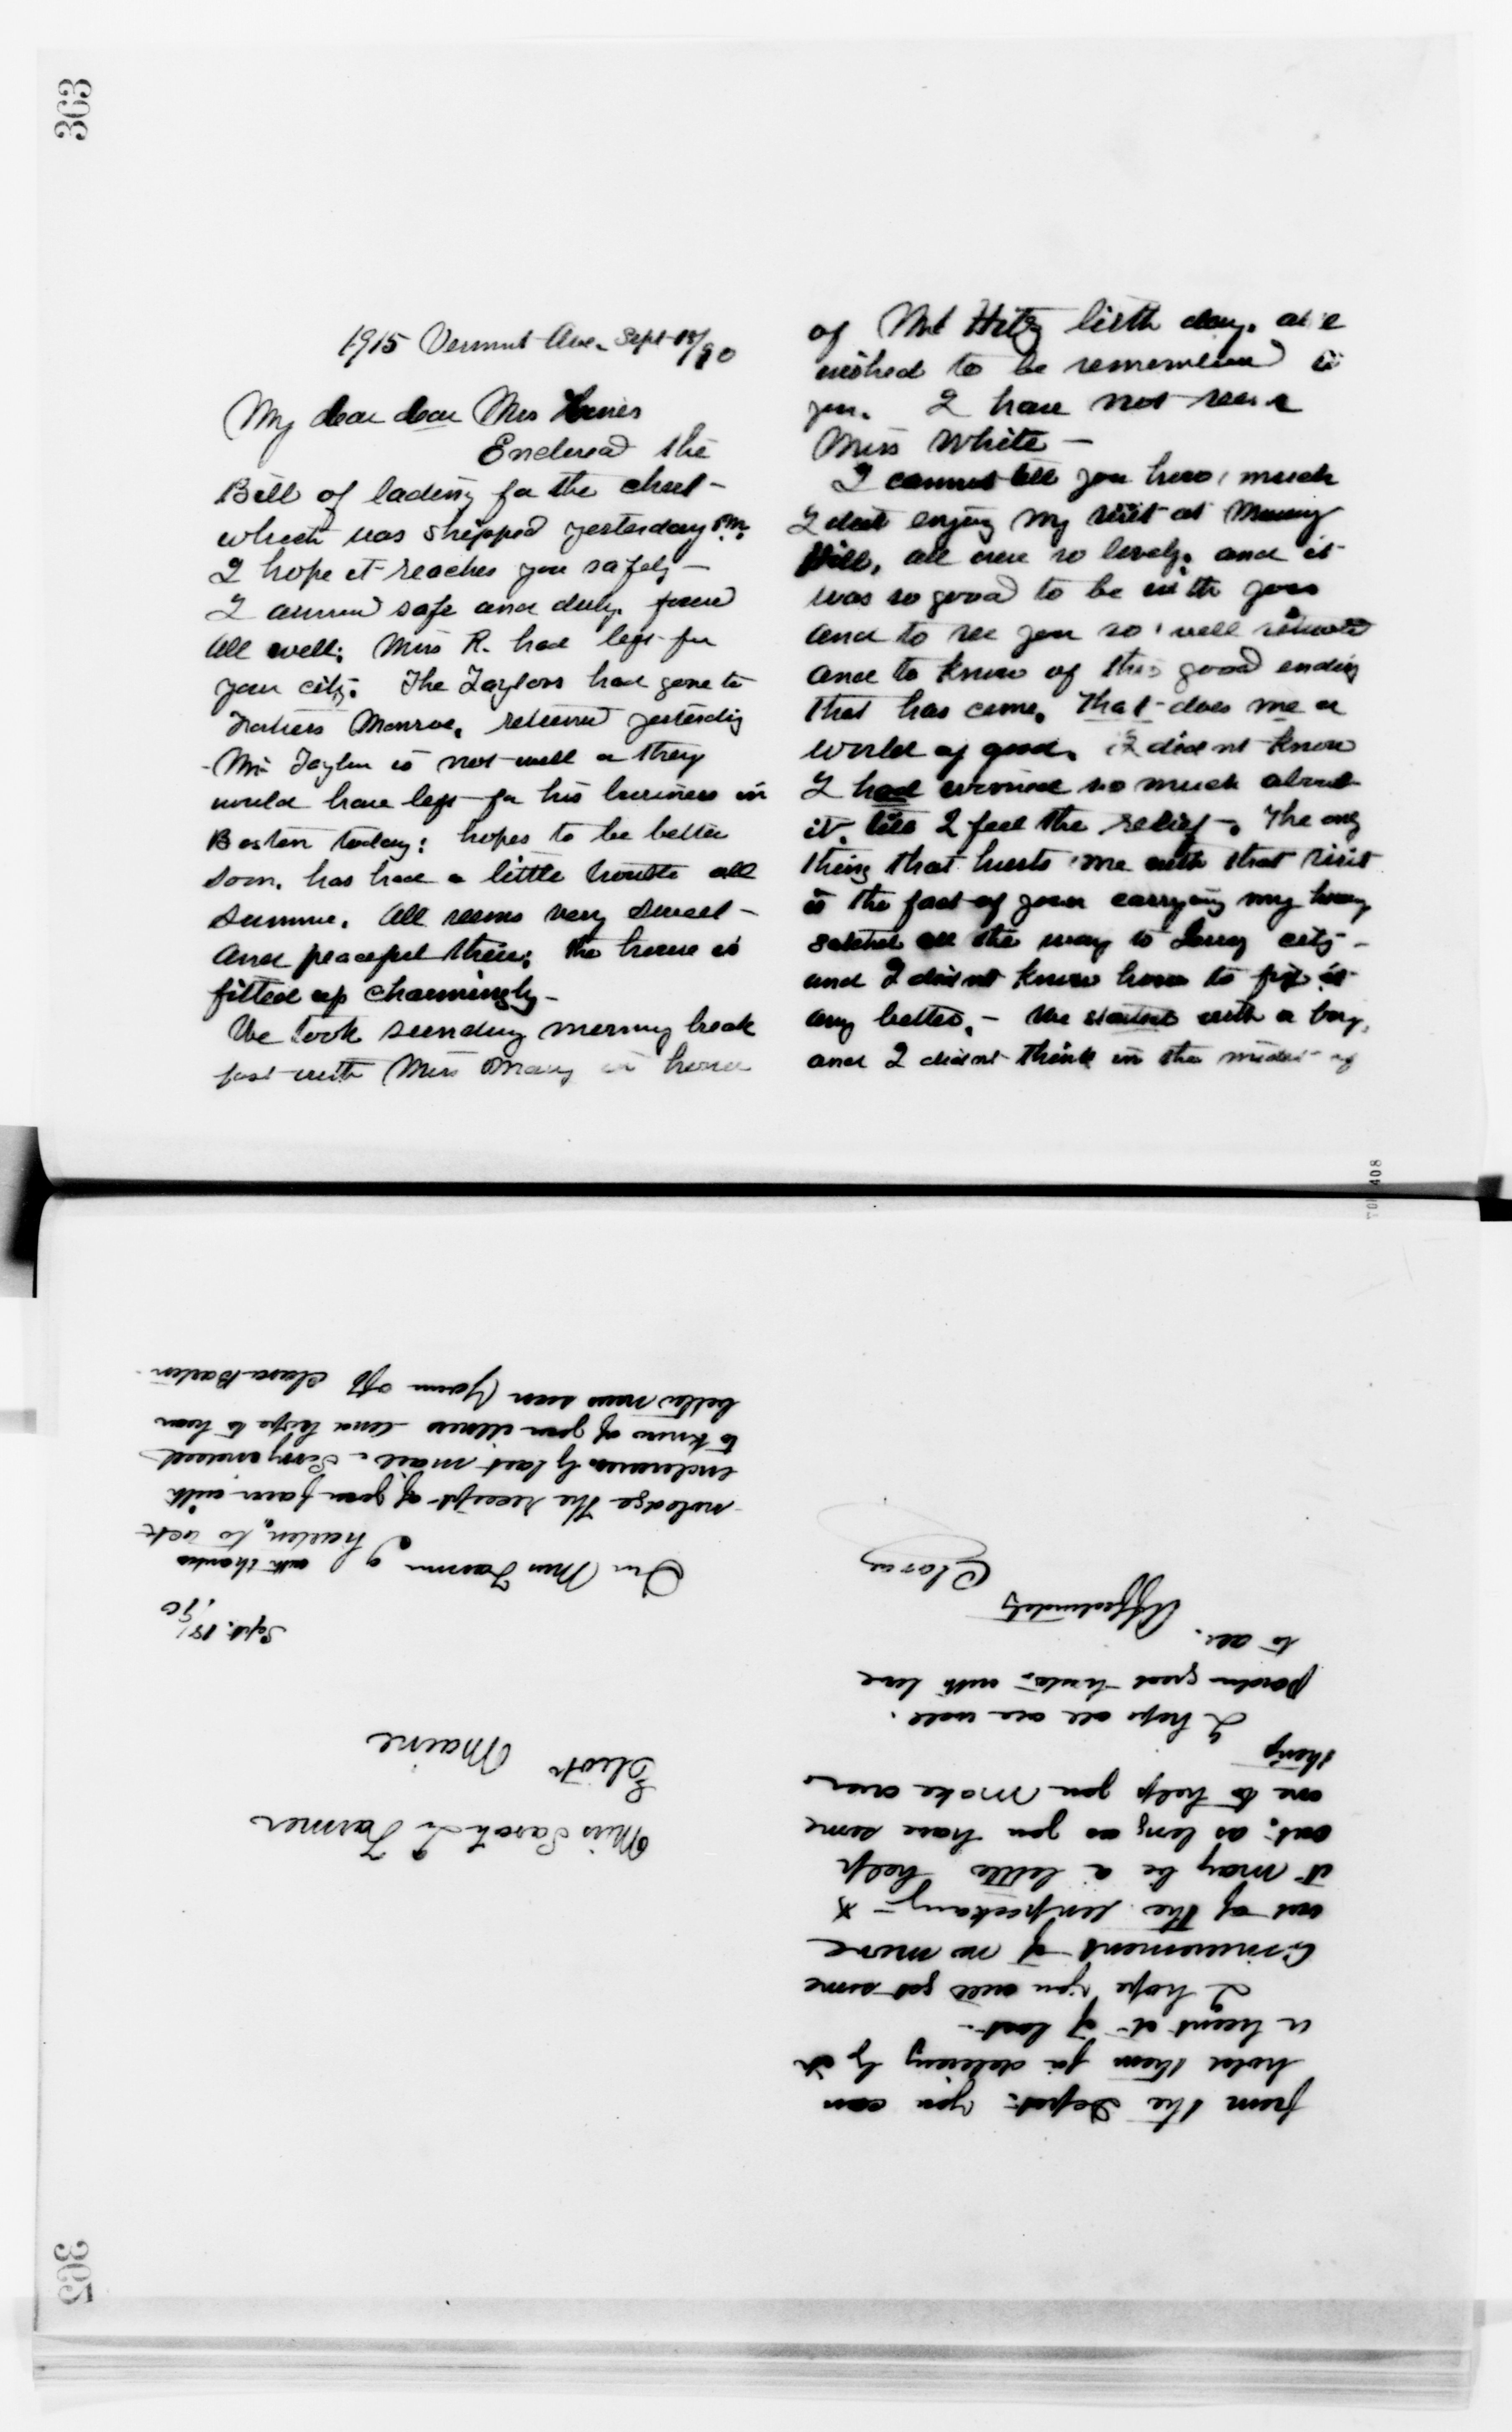 363
1915 Vermont Ave. Sept 18/90
My dear dear Mrs
Enclosed the
Bill of lading for the chest -
which was shipped yesterday P.M.
I hope it reaches you safely -
I arrived safe and duly. found
all well; Miss R. had left for
your city. The Taylors had gone to
Fortress Monroe, returned yesterday
- Mr Taylor is not well or they
would have left for his business in
Boston today: hopes to be better
soon. has had a little trouble all
summer. All seems very sweet -
and peaceful there; the house is
fitted up charmingly -
We took sunday morning break
fast with Miss Mary in honor
of Mr Hitz birth day. all
wished to be remembered to
you. I have not seen
Miss White -
I cannot tell you how much
I did enjoy my visit at Murray
Hill, all were so lovely. and it
was so good to be with you
and to see you so well situated
and to know of this good ending
that has come. That does me a
world of good. I did nt know
I had worried so much about
it, till I feel the relief -. The only
thing that hurts me with that visit
is the fact of your carrying my heavy
satchel all the way to Jersey city -
and I did nt know how to fix it
any better. - We started with a boy,
and I did nt think in the midst of
408
from the Depot: you can
hold them for delivery by it
or hunt it if lost -
I hope you will get some
Amusement if no more
out of the - x
it may be a little help
out, as long as you have some
one to help you make over
things
I hope all are well.
pardon great haste - with love
to all.
Affectionately
Clara
Miss Sarah J. Farmer
Eliot Maine
Sept. 18/90
Dear Miss Farmer I hasten, with thanks to ack-
-nowledge the receipt of your favor with
enclosures by last mail - Sorry indeed
to know of your illness and hope to hear
better news soon Yours aff Clara Barton
362